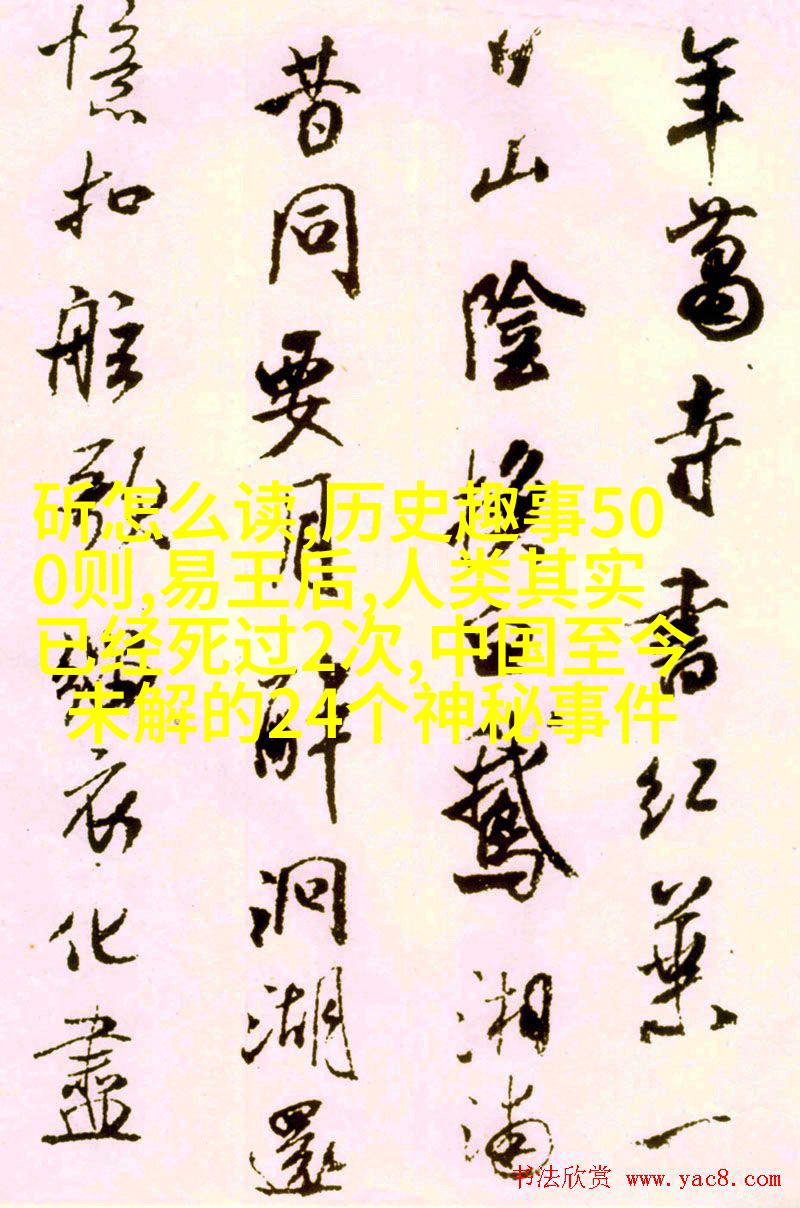 年蕭寺書紅葉一
日山陰換白鵞湘浦
昔同要月醉洞湖還
憶扣舷歌緇衣化盡
斫怎么读,历史趣事50
0则,易王后,人类其实
已经死过2次,中国至今
未解的24个神秘事件
书法欣赏 www.yac8.com